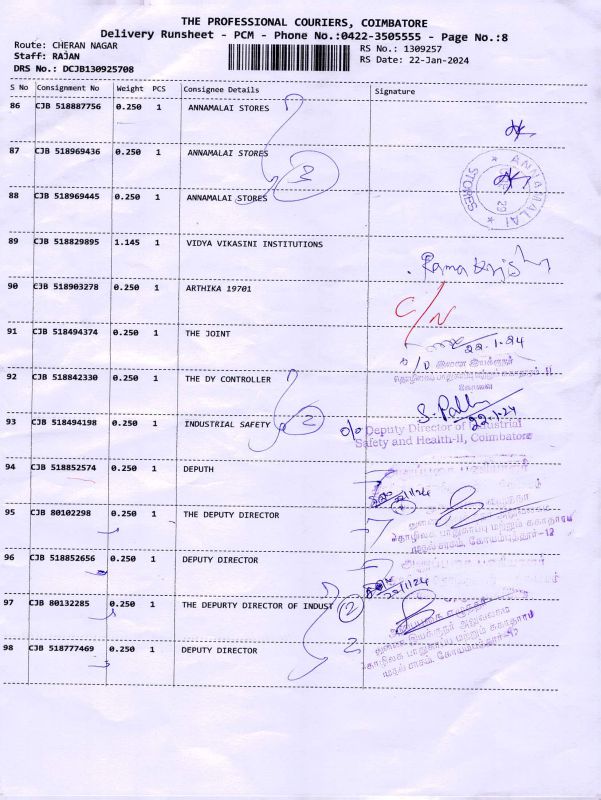 THE PROFESSIONAL COURIERS, COIMBATORE
Delivery Runsheet - PCM - Phone No.:0422-3505555 - Page No.:8
Route: CHERAN NAGAR
Staff: RAJAN
DRS No.: DCJB130925708
RS No.: 1309257
RS Date: 22-Jan-2024
S No Consignment No Weight PCS Consignee Details Signature
86 CJB 518887756 0.250 1 ANNAMALAI STORES
87 CJB 518969436 0.250 1 ANNAMALAI STORES
3
ANNAMALAI STORES
88 CJB 518969445 0.250 1 ANNAMALAI STORES
89 CJB 518829895 1.145 1 VIDYA VIKASINI INSTITUTIONS
90 CJB 518903278 0.250 1 ARTHIKA 19701
C/N
91 CJB 518494374 0.250 1 THE JOINT
22-1-24
92 CJB 518842330 0.250 1 THE DY CONTROLLER
கோவை
22-1-24
93 CJB 518494198 0.250 1 INDUSTRIAL SAFETY 2
o/o Deputy Director of Industrial
Safety and Health-II, Coimbatore
94 CJB 518852574 0.250 1 DEPUTH
22/1/24
95 CJB 80102298 0.250 1 THE DEPUTY DIRECTOR
96 CJB 518852656 0.250 1 DEPUTY DIRECTOR
22/1/24
97 CJB 80132285 0.250 1 THE DEPURTY DIRECTOR OF INDUST 12
98 CJB 518777469 0.250 1 DEPUTY DIRECTOR 2